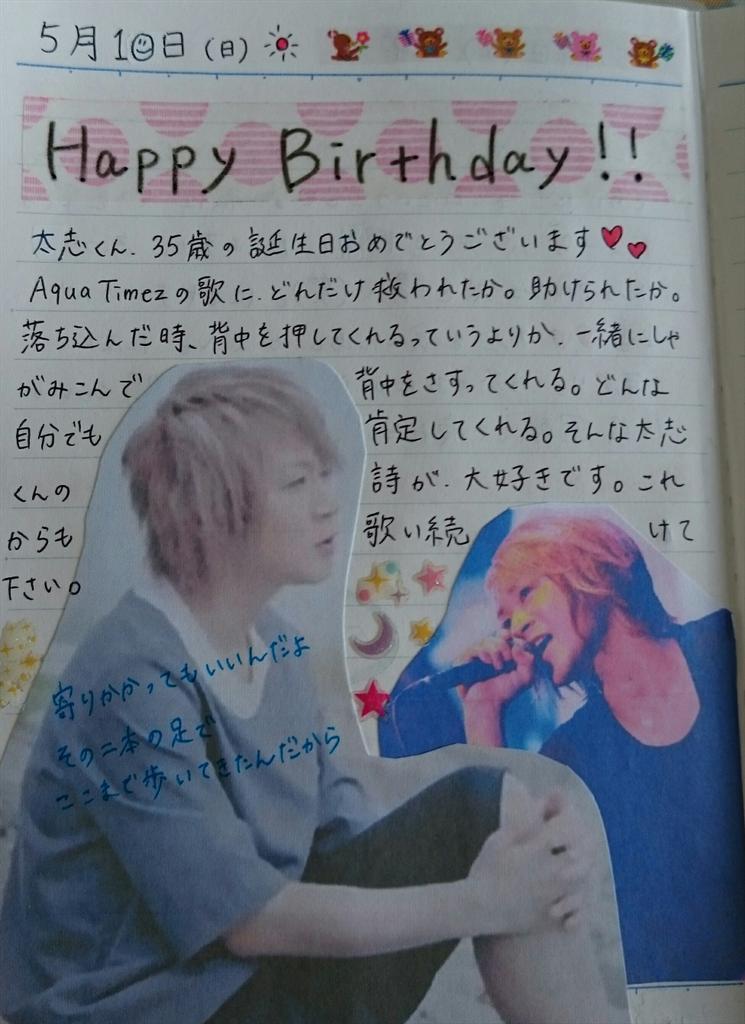 5月10日(日)
Happy Birthday!!
太志くん、35歳の誕生日おめでとうございます
Aqua Timezの歌に、どんだけ救われたか。助けられたか。
落ち込んだ時、背中を押してくれるっていうよりか、一緒にしゃ
がみこんで背中をさすってくれる。どんな
自分でも肯定してくれる。そんな太志
くんの詩が、大好きです。これ
からも歌い続けて
下さい。
寄りかかってもいいんだよ
その二本の足で
ここまで歩いてきたんだから